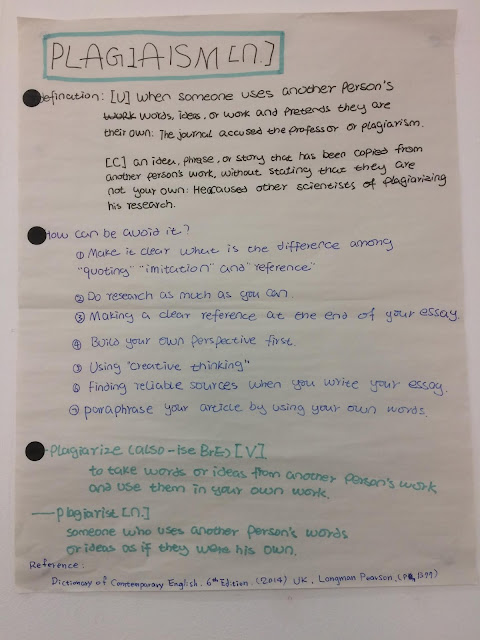 PLAGIAISM [n.]
defination: [U] when someone uses another person's
work words, ideas, or work and pretends they are
their own: The journal accused the professor or plagiarism.
[C] an idea, phrase, or story that has been copied from
another person's work, without stating that they are
not your own: Heacaused other scientists of plagiarizing
his research.
How can be avoid it?
① Make it clear what is the difference among
"quoting" "imitation" and "reference"
② Do research as much as you can.
③ Making a clear reference at the end of your essay.
④ Build your own perspective first.
⑤ Using "creative thinking"
⑥ finding reliable sources when you write your essay.
⑦ paraphrase your article by using your own words.
plagiarize (also -ise BrE) [V]
to take words or ideas from another person's work
and use them in your own work.
plagiarist [n.]
someone who uses another person's words
or ideas as if they were his own.
Reference:
Dictionary of Contemporary English. 6th Edition. (2014) UK. Longman Pearson.